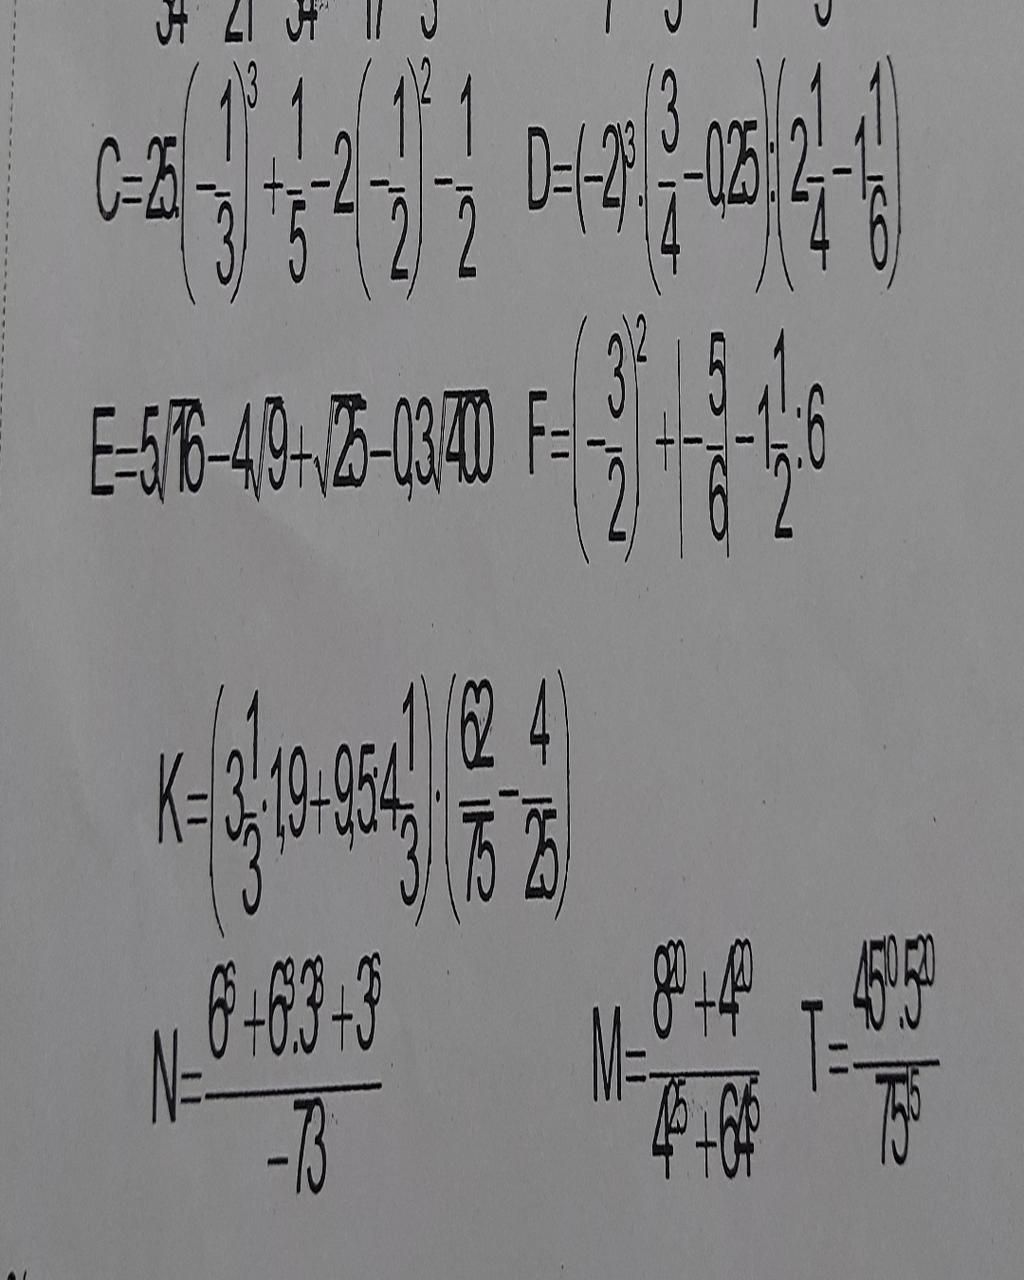 C=25.(-1/3)^3+1/5-2(-1/2)^2-1/2 D=(-2)^3.(3/4-0,25):(2 1/4-1 1/6)
E=5√16-4√9+√25-0,3√400 F=(-3/2)^2+|-5/6|-1 1/2:6
K=(3 1/3.1,9+9,5:4 1/3).(62/75-4/25)
N=(6^6+6^3.3^3+3^6)/-73 M=(8^20+4^20)/(4^25+64^5) T=(45^10.5^20)/75^15